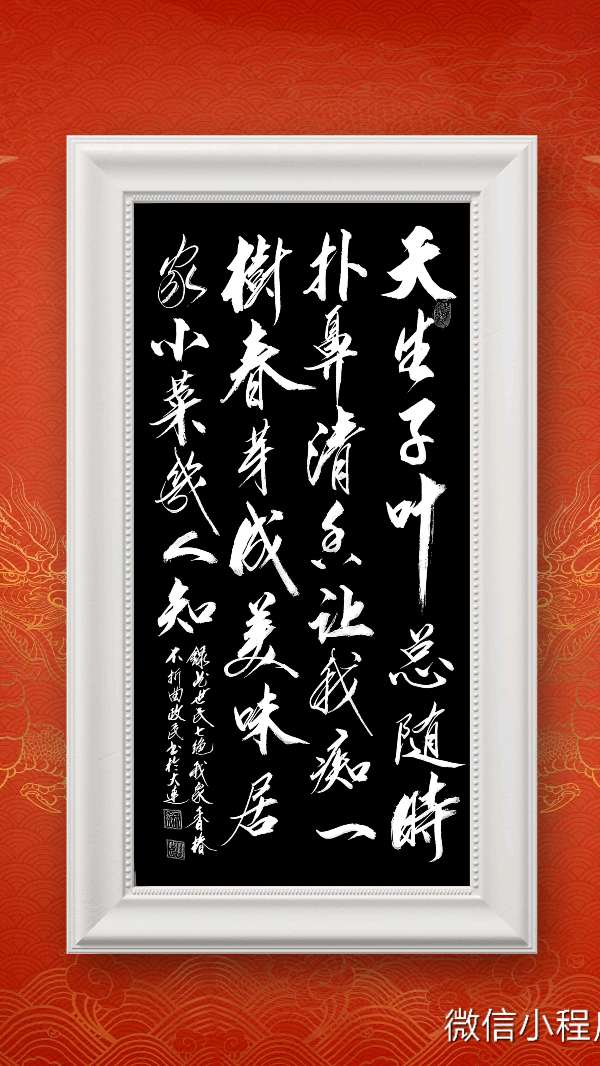 天生子叶总随時
扑鼻清香让我痴一
樹春芽成美味居
家小菜几人知
世民七绝我家香椿
不折曲政民书於大连
微信小程